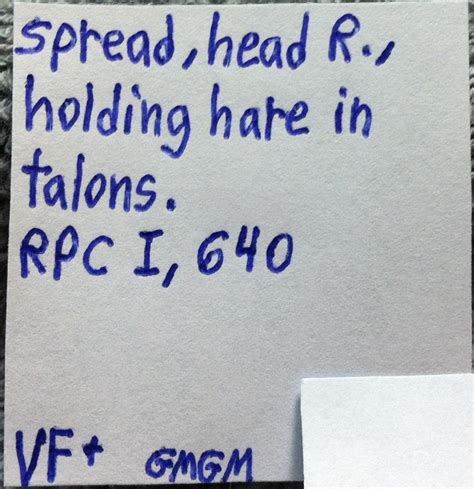 spread, head R.,
holding hare in
talons.
RPC I, 640
VF+ GMGM